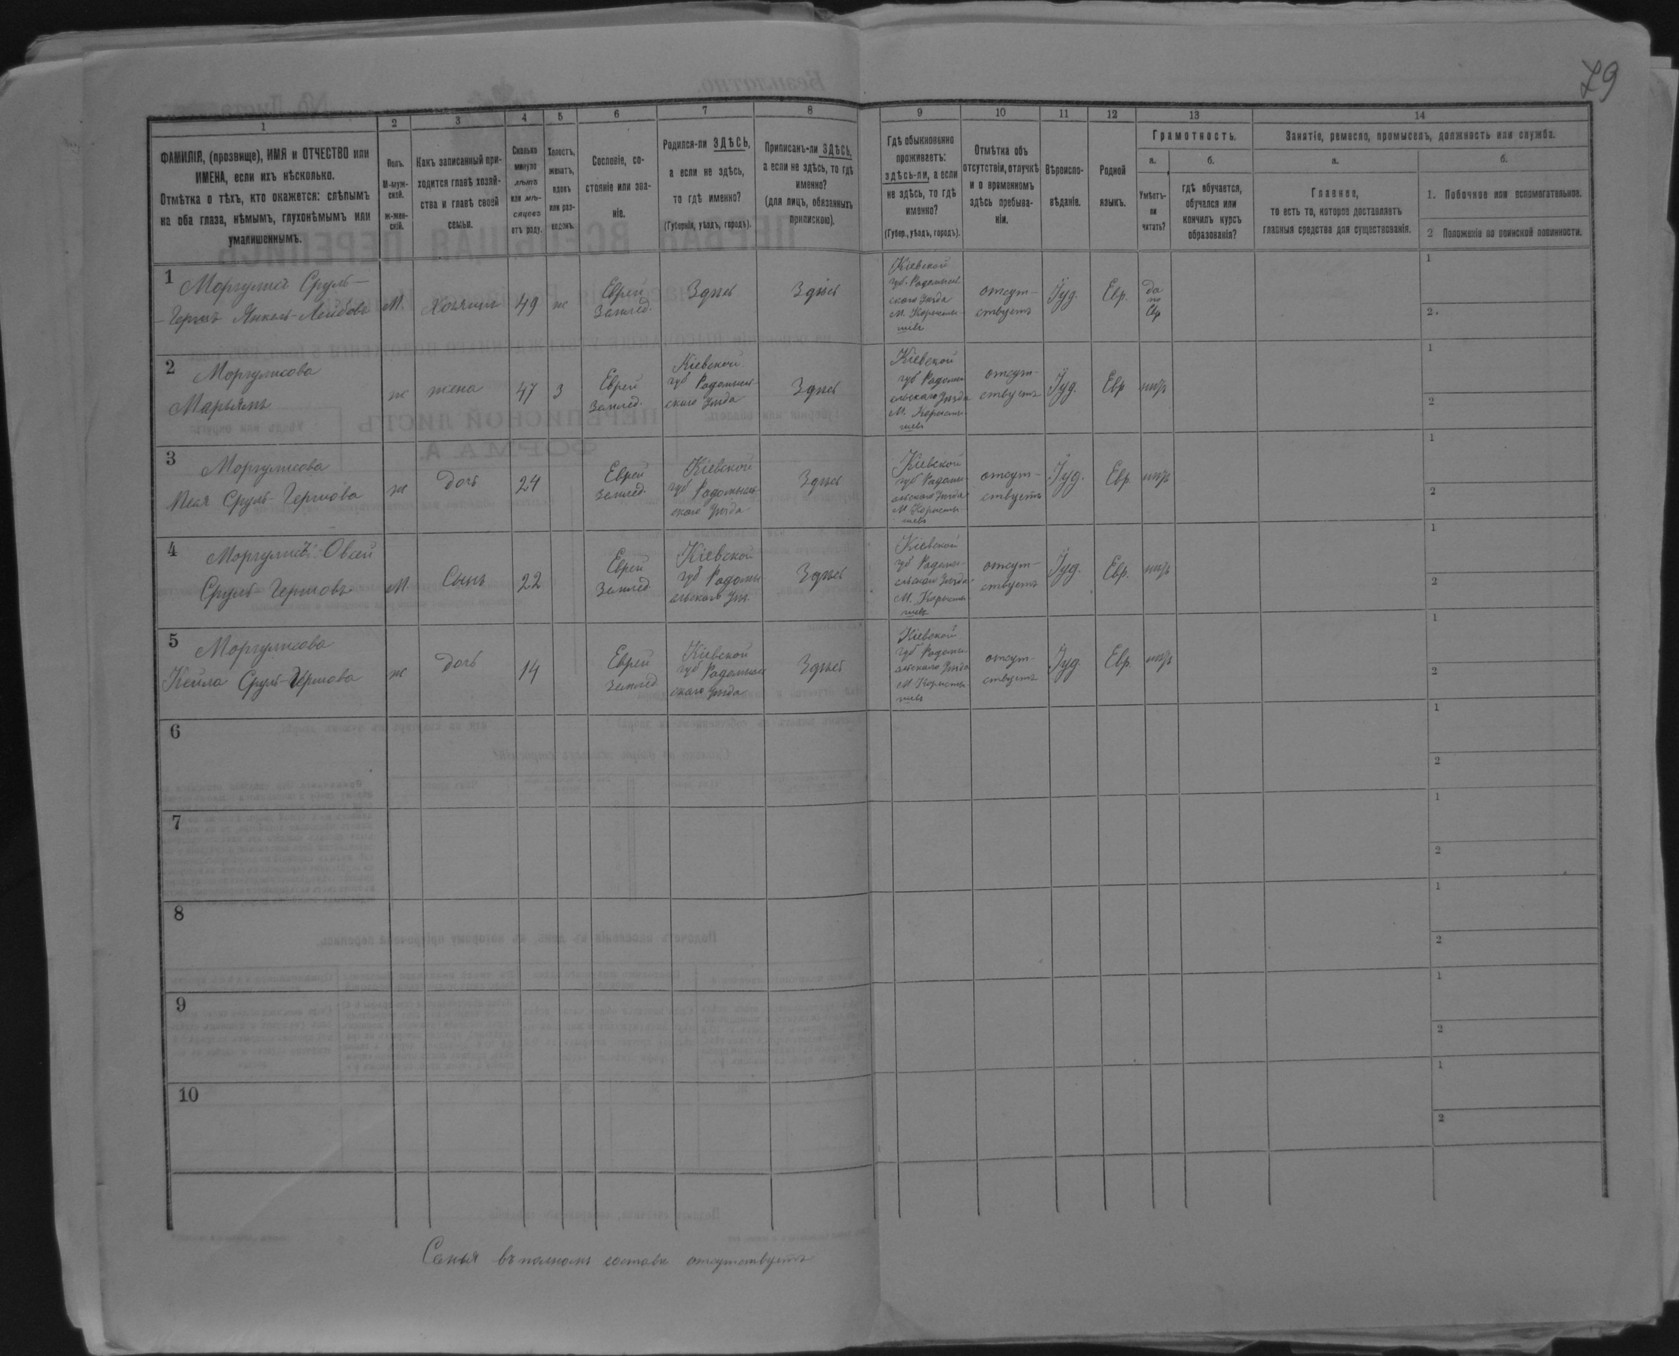 79
1
2
3
4
5
6
7
8
9
10
11
12
13
14
ФАМИЛІЯ, (прозвище), ИМЯ и ОТЧЕСТВО или
ИМЕНА, если ихъ нѣсколько.
Отмѣтка о тѣхъ, кто окажется: слѣпымъ
на оба глаза, нѣмымъ, глухонѣмымъ или
умалишеннымъ.
Полъ.
М-муж-
ской.
ж-жен-
ской.
Какъ записанный при-
ходится главѣ хозяй-
ства и главѣ своей
семьи.
Сколько
минуло
лѣтъ
или мѣ-
сяцевъ
отъ роду.
Холостъ,
женатъ,
вдовъ
или раз-
веденъ.
Сословіе, со-
стояніе или зва-
ніе.
Родился-ли ЗДѢСЬ,
а если не здѣсь,
то гдѣ именно?
(Губернія, уѣздъ, городъ).
Приписанъ-ли ЗДѢСЬ,
а если не здѣсь, то гдѣ
именно?
(для лицъ, обязанныхъ
припискою).
Гдѣ обыкновенно
проживаетъ:
здѣсь-ли, а если
не здѣсь, то гдѣ
именно?
(Губер., уѣздъ, городъ).
Отмѣтка объ
отсутствіи, отлучкѣ
и о временномъ
здѣсь пребыва-
ніи.
Вѣроиспо-
вѣданіе.
Родной
языкъ.
Грамотность.
а.
Умѣетъ-
ли
читать?
б.
гдѣ обучается,
обучался или
кончилъ курсъ
образованія?
Занятіе, ремесло, промыселъ, должность или служба.
а.
Главное,
то есть то, которое доставляетъ
главныя средства для существованія.
б.
1. Побочное или вспомогательное.
2 Положеніе по воинской повинности.
1
Моргулисъ Сруль-
Гершъ Янкель-Лейбовъ
М
Хозяинъ
49
ж
Еврей
Землед.
Здѣсь
Здѣсь
Кіевской
губ. Радомысль
скаго уѣзда
М. Коросты-
шевъ
отсут-
ствуетъ
Іуд.
Евр.
да
по
Евр
1
2.
2
Моргулисова
Марьямъ
ж
жена
47
з
Еврей
Землед.
Кіевской
губ Радомысль
скаго уѣзда
Здѣсь
Кіевской
губ Радомы
сльскаго уѣзда
М. Коросты-
шевъ
отсут-
ствуетъ
Іуд.
Евр
нѣтъ
1
2
3
Моргулисова
Сруль-Гершова
ж
Дочь
24
Еврей
Землед.
Кіевской
губ Радомысль-
скаго уѣзда
Здѣсь
Кіевской
губ Радомы
сльскаго уѣзда
М. Коросты-
шевъ
отсут-
ствуетъ
Іуд.
Евр
нѣтъ
1
2
4
Моргулисъ Овсей
Сруль Гершовъ
М
Сынъ
22
Еврей
Землед.
Кіевской
губ Радомы
сльскаго уѣз.
Здѣсь
Кіевской
губ Радомы-
сльскаго уѣзда
М. Коросты-
шевъ
отсут-
ствуетъ
Іуд.
Евр.
нѣтъ
1
2
5
Моргулисова
Кейла Сруль-Гершова
ж
Дочь
14
Еврей
Землед
Кіевской
губ Радомысль
скаго уѣзда
Здѣсь
Кіевской
губ Радомы
сльскаго уѣзда
М Коросты-
шевъ
отсут-
ствуетъ
Іуд.
Евр.
нѣтъ
1
2
6
1
2
7
1
2
8
1
2
9
1
2
10
1
2
Семья въ полномъ составѣ отсутствуетъ